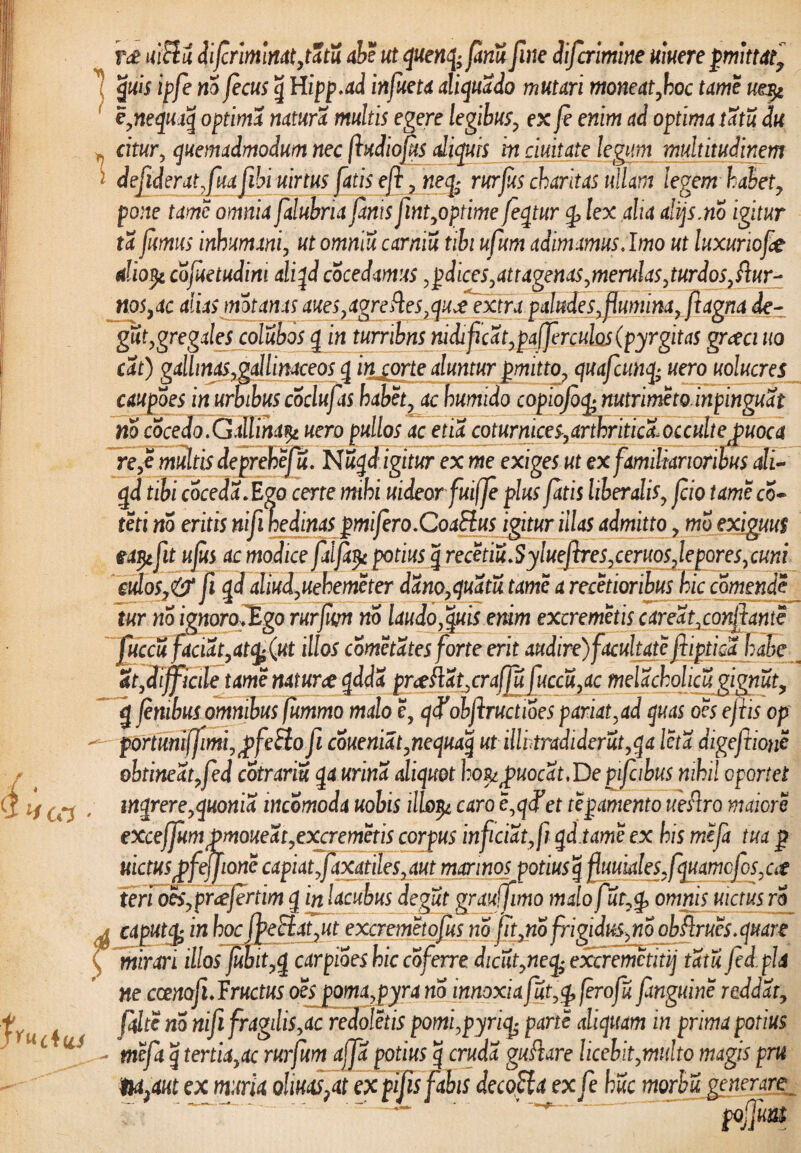 ræ uictu discriminat,tãtũ abẽ ut quenq; sanũ sine discrimine uiuere pmittat,
quis ipse nõ secus q̃ Hipp.ad insueta aliquãdo mutari moneat,hoc tamẽ ueꝝ
ẽ,nequaq̃ optimã naturã multis egere legibus, ex se enim ad optima tãtũ du
citur, quemadmodum nec studiosus aliquis in ciuitate legum multitudinem
desiderat,sua sibi uirtus satis est, neq; rursus charitas ullam legem habet,
pone tamẽ omnia salubria sanis sint,optime seqtur ꝙ lex alia alijs.nõ igitur
tã sumus inhumani, ut omniũ carniũ tibi usum adimamus.Imo ut luxuriosæ
alioꝝ cõsuetudini aliqd cõcedamus ,pdices,attagenas,merulas,turdos,stur-
nos,ac alias mõtanas aues,agrestes,quæ extra paludes,flumina,stagna de-
gũt,gregales colũbos q in turribns nidificãt,passerculos(pyrgitas græci uo
cãt) gallinas,gallinaceos q in corte aluntur pmitto, quascunq; uero uolucres
caupões in urbibus cõclusas habẽt, ac humido copiosoq; nutrimẽto inpinguãt
nõ cõcedo.Gallinaꝝ uero pullos ac etiã coturnices,arthriticã occulte puoca
re,ẽ multis deprehẽsũ. Nũqd igitur ex me exiges ut ex familiarioribus ali-
qd tibi cõcedã.Ego certe mihi uideor fuisse plus satis liberalis, scio tamẽ cõ-
tẽti nõ eritis nisi hedinas pmisero.Coactus igitur illas admitto, mõ exiguus
eaꝝ sit usus ac modice salsaꝝ potius q̃ recẽtiũ.Syluestres,ceruos,lepores,cuni
culos,& si qd aliud,uehemẽter dãno,quãtũ tamẽ a recẽtioribus hic comẽnde
tur nõ ignoro.Ego rursum nõ laudo,quis enim excremẽtis careãt,constantẽ
succũ faciãt,atq;(ut illos comẽtãtes forte erit audire)facultatẽ stipticã habe
ãt,difficile tamẽ naturæ qddã præstãt,crassũ succũ,ac melãcholicũ gignũt,
q senibus omnibus summo malo ẽ, qđ obstructiões pariat,ad quas oẽs estis op
portunissimi, pfecto si cõueniãt,nequaq̃ ut illi tradiderũt,qa lẽtã digestionẽ
obtineãt,sed cõtrariũ qa urinã aliquot hoꝝ puocãt.De piscibus nihil oportet
inqrere,quoniã incõmoda uobis illoꝝ caro ẽ,qđ et tẽpamento uestro maiorẽ
excessum pmoueãt,excremẽtis corpus inficiãt,si qd tamẽ ex his mẽsa tua p
uictus pfessionẽ capiat,saxatiles,aut marinos potius q̃ fluuiales,squamosos,cæ
teri oẽs,præsertim q in lacubus degũt grauissimo malo sũt,ꝙ omnis uictus rõ
caputq; in hoc spectat,ut excremẽtosus nõ sit,nõ frigidus,nõ obstruẽs.quare
mirari illos subit,q carpiões hic cõferre dicũt,neq; excremẽtitij tãtũ sed plã
ne cœnosi.Fructus oẽs poma,pyra nõ innoxia sũt,ꝙ serosũ sanguinẽ reddãt,
saltẽ nõ nisi fragilis,ac redolẽtis pomi,pyriq; partẽ aliquam in prima potius
mẽsa q̃ tertia,ac rursum assã potius q̃ cruda gustare licebit,multo magis pru
na,aut ex muria oliuas,at ex pisis fabis decocta ex se huc morbũ generare
possunt
Fructus